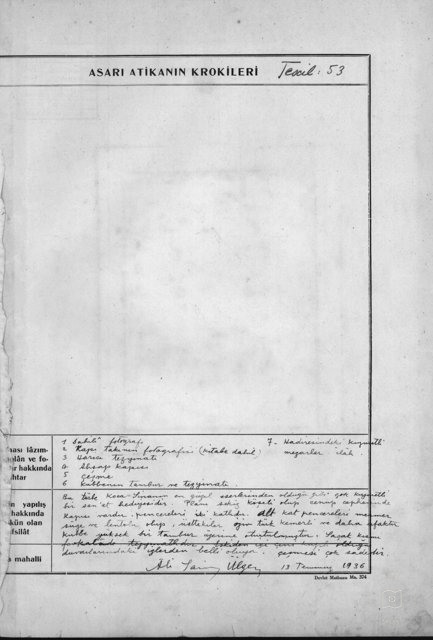 ASARI ATİKANIN KROKİLERİ Tescil: 53
ması lâzım-
plân ve fo-
hakkında
ihtar
1 Dahili fotoğraf
2 Kapı takının fotografisi (kitabe dahil)
3 Harici tezyinatı
4 Ahşap kapısı
5 Çeşme
6 Kubbenin tanbur ve tezyinatı
7- Haziresindeki kıymetli
mezarlar ilâh.
yapılış
hakkında
kün olan
fsilât
Bu türbe Koca Sinanın en güzel eserlerinden olduğu gibi çok kıymetli
bir san'at hediyesidir. Planı sekiz köşeli olup cenup cephesinde
kapısı vardır, pencereleri iki katlıdır. Alt kat pencereleri mermer
söğe ve lentolu olup, üsttekiler türk kemerli ve daha ufaktır
kubbe yüksek bir tambur üzerine oturtulmuştur.
duvarlarındaki izlerden belli oluyor. çeşmesi çok sadedir.
mahalli
Ali Saim Ülgen 13 Temmuz 1936
Devlet Matbaası Ma. 374